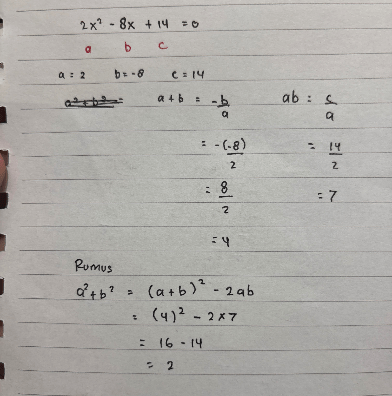 2x² - 8x + 14 = 0
a b c
a = 2 b = -8 c = 14
a² + b² = a + b = -b/a ab = c/a
= -(-8)/2 = 14/2
= 8/2 = 7
= 4
Rumus
a² + b² = (a + b)² - 2ab
= (4)² - 2 x 7
= 16 - 14
= 2